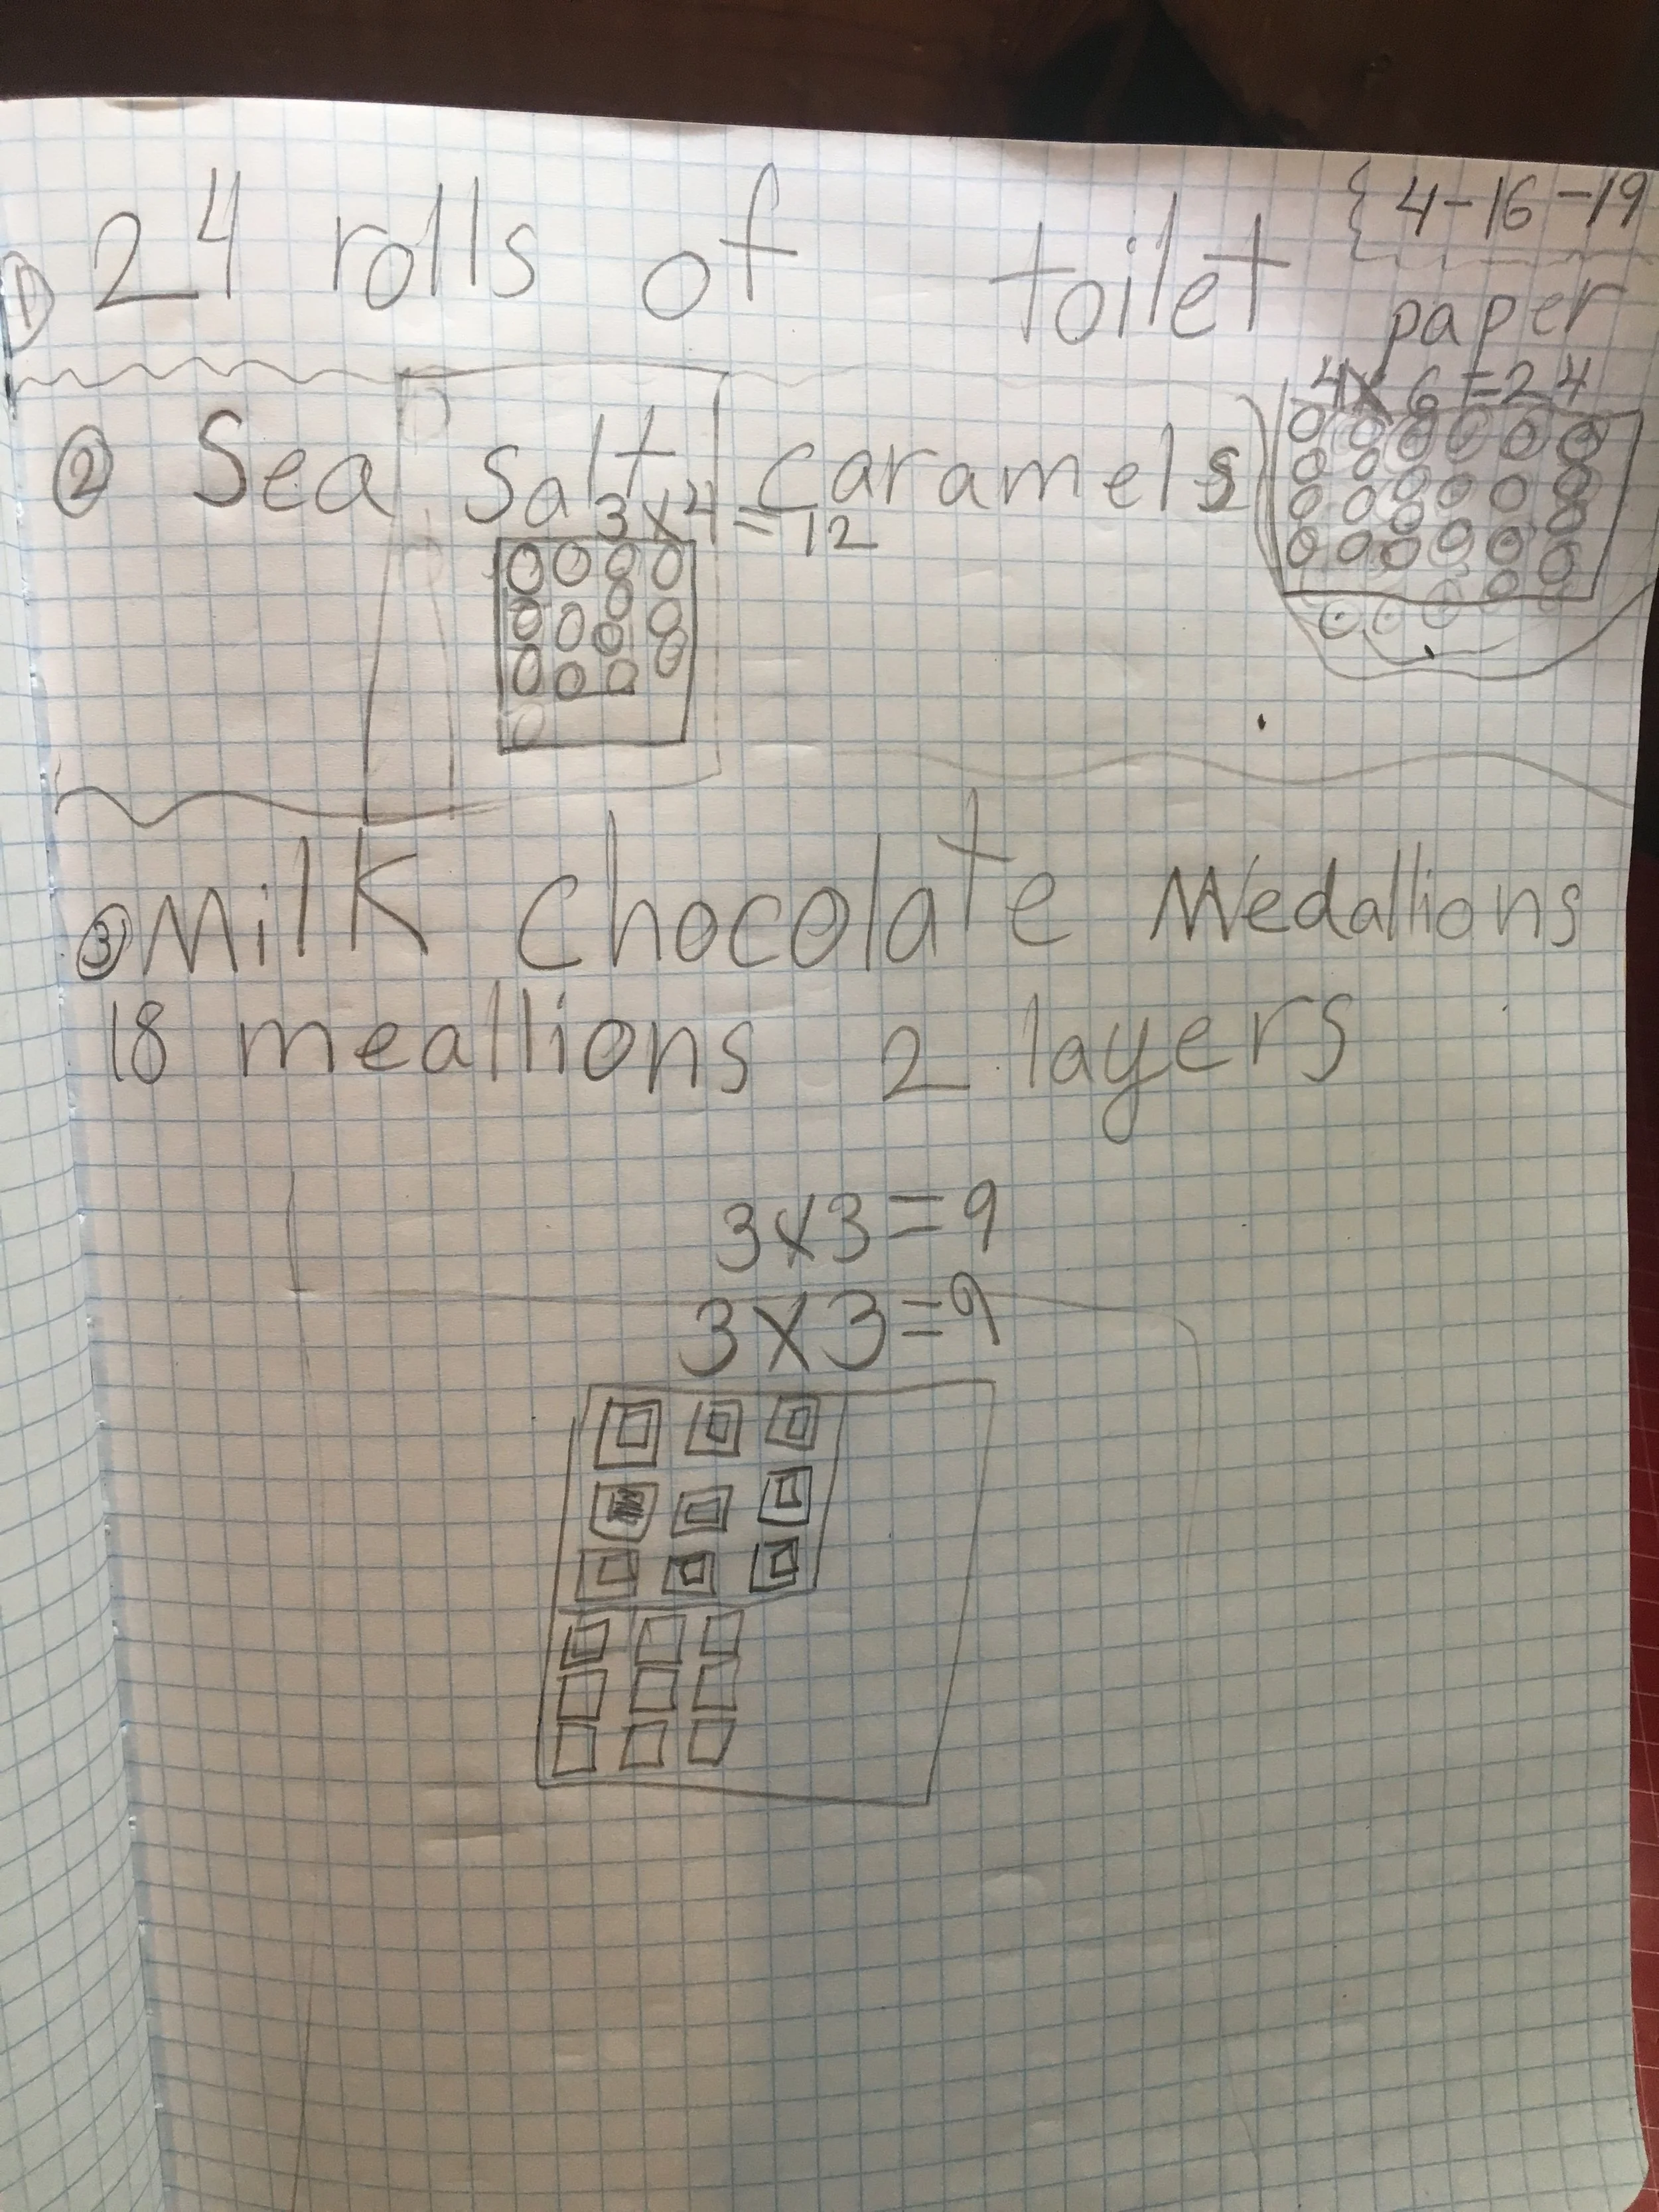 4-16-19
① 24 rolls of toilet paper
4x6=24
② Sea salt caramels
3x4=12
③ Milk chocolate Medallions
18 meallions 2 layers
3x3=9
3x3=9